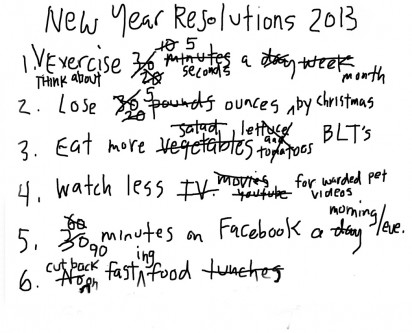 New Year Resolutions 2013
10 5
1. Exercise 30 minutes a day week
Think about 20 seconds month
2. Lose 30 5 pounds ounces by christmas
20
salad lettuce and BLT's
3. Eat more vegetables tomatoes
4. Watch less T.V. movies youtube for warded pet videos
60 morning/eve.
5. 30 90 minutes on Facebook a day
cut back ing
6. No on fast food lunches